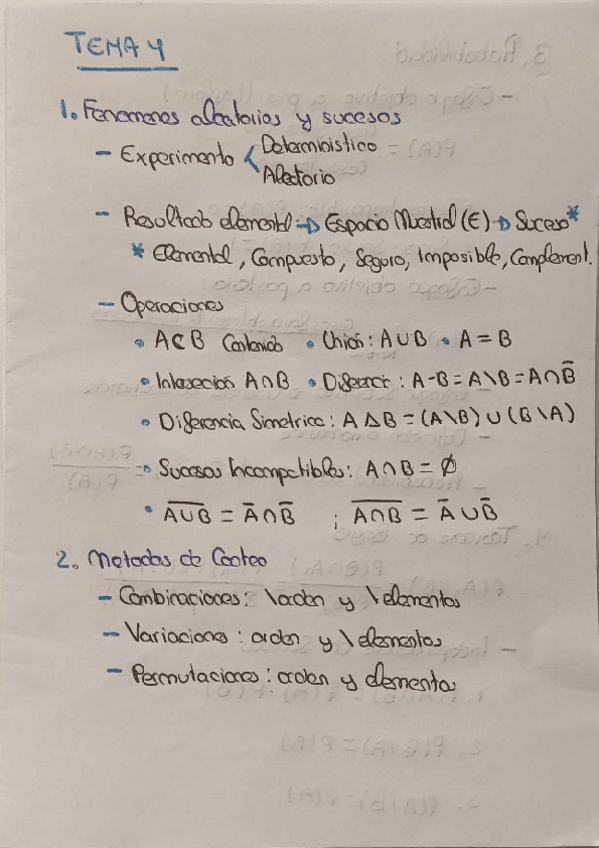 TEMA 4
1. Fenomenos aleatorios y sucesos
- Experimento < Deterministico
Aleatorio
- Resultado elemental → Espacio Muestral (E) → Suceso*
* Elemental, Compuesto, Seguro, Imposible, Complement.
- Operaciones
• A⊂B Contenido • Unión: A∪B • A = B
• Intersección A∩B • Diferencia: A-B = A\B = A∩B̅
• Diferencia Simetrica: A△B = (A\B) ∪ (B\A)
• Sucesos Incompatibles: A∩B = ∅
• A̅∪̅B̅ = A̅∩B̅ ; A̅∩̅B̅ = A̅∪B̅
2. Metodos de Conteo
- Combinaciones: \orden y \elementos
- Variaciones: orden y \elementos
- Permutaciones: orden y elementos